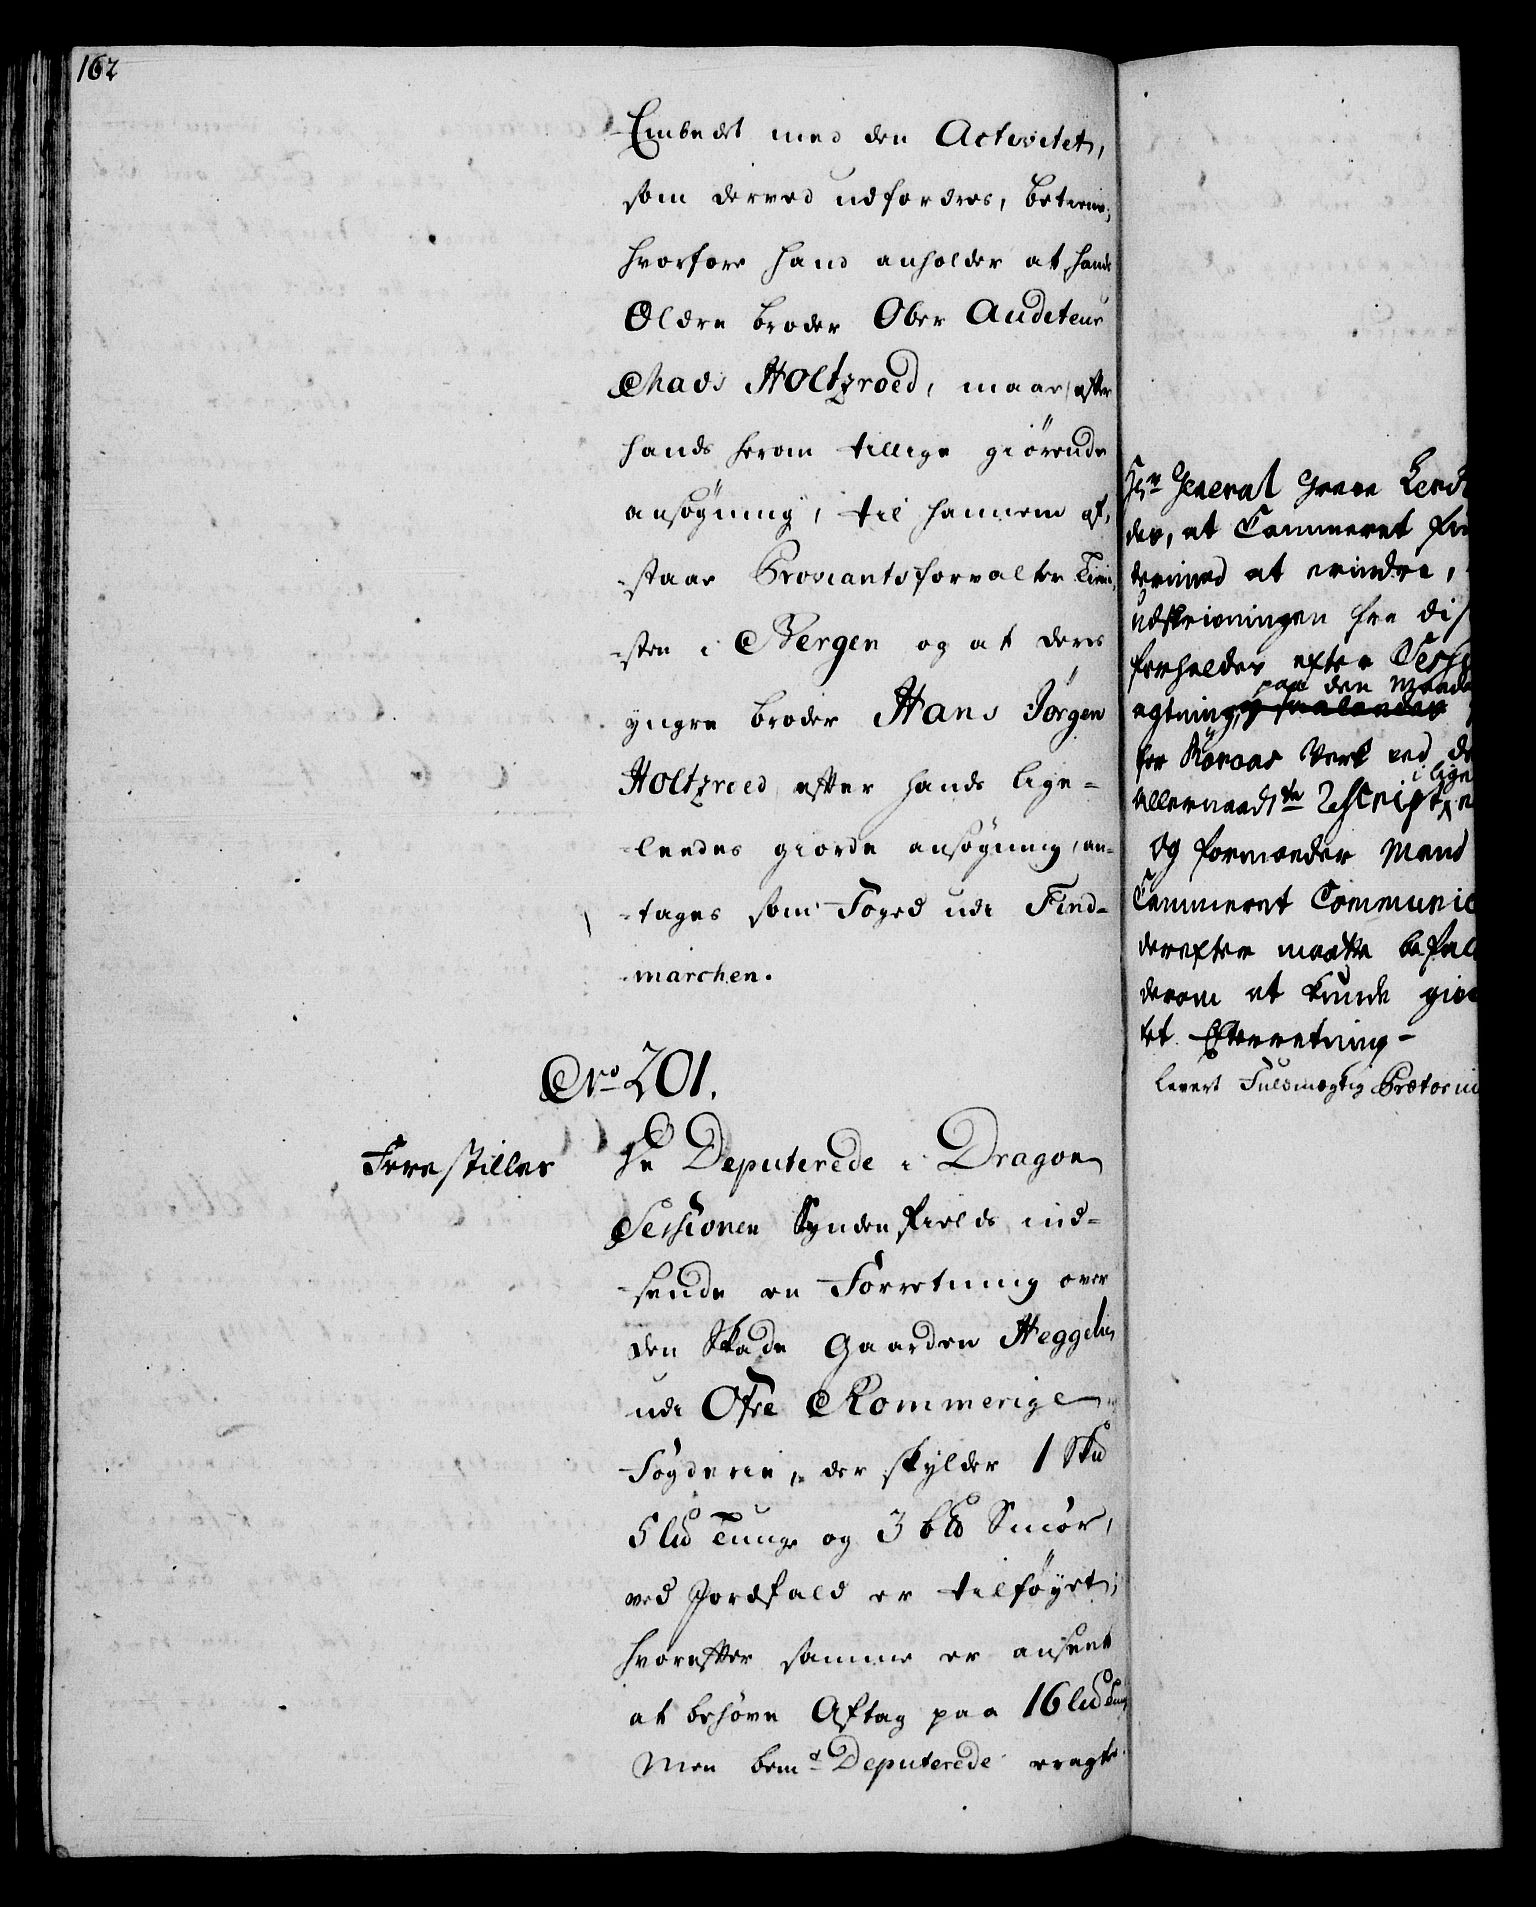 162
Embedet med den Activitet,
som derved udfordres, betiene;
hvorfore hand anholder at hands
Ældre broder Ober Auditeur
Mads Holtzroed, maae efter
hands herom tillige giörende
ansögning, til hannem af-
-staae Proviantsforvalter Tieni-
-sten i Bergen og at deres
yngre broder Hans Jörgen
Holtzroed efter hands lige-
-leedes giorde ansögning, an-
-tages som Foged udi Find-
-marchen.
No 201.
Forestilles
De Deputerede i Dragon
Sessionen Syndenfields ind-
-sende en Forretning over
den Skade Gaarden Heggelie
udi Ofre Rommerige
Fögderie, der skylder 1 Skd
5 lld Tunge og 3 bld Smör,
ved Jordfald er tilföyet;
hvorefter samme er anseet
at behöve Aftag paa 16 lld Tunge
Men bemte Deputerede eragte
Hr General Greve
der, at Cammeret
dermed at erindre,
udskrivningen fra
forholdes efter
paa den Maade
agtning,
for Röraas Verk ved
lige
allernaadste Rescript
og formoeder
Cammeret
derefter maatte
derom at kunde
tet Efterretning -
levert Fuldmægtig